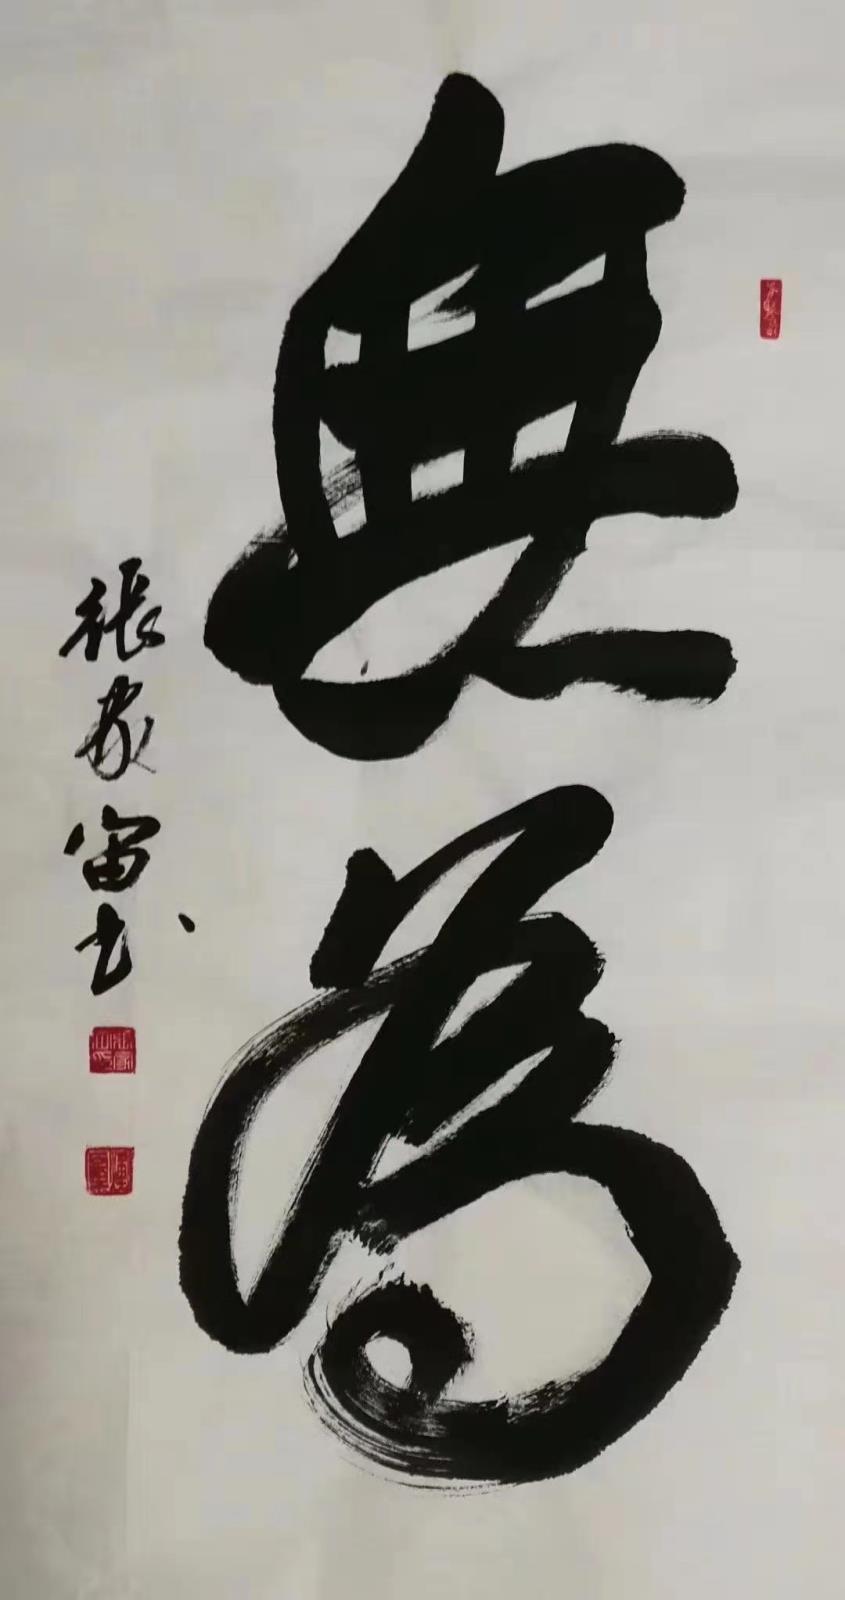 無為
張家富书